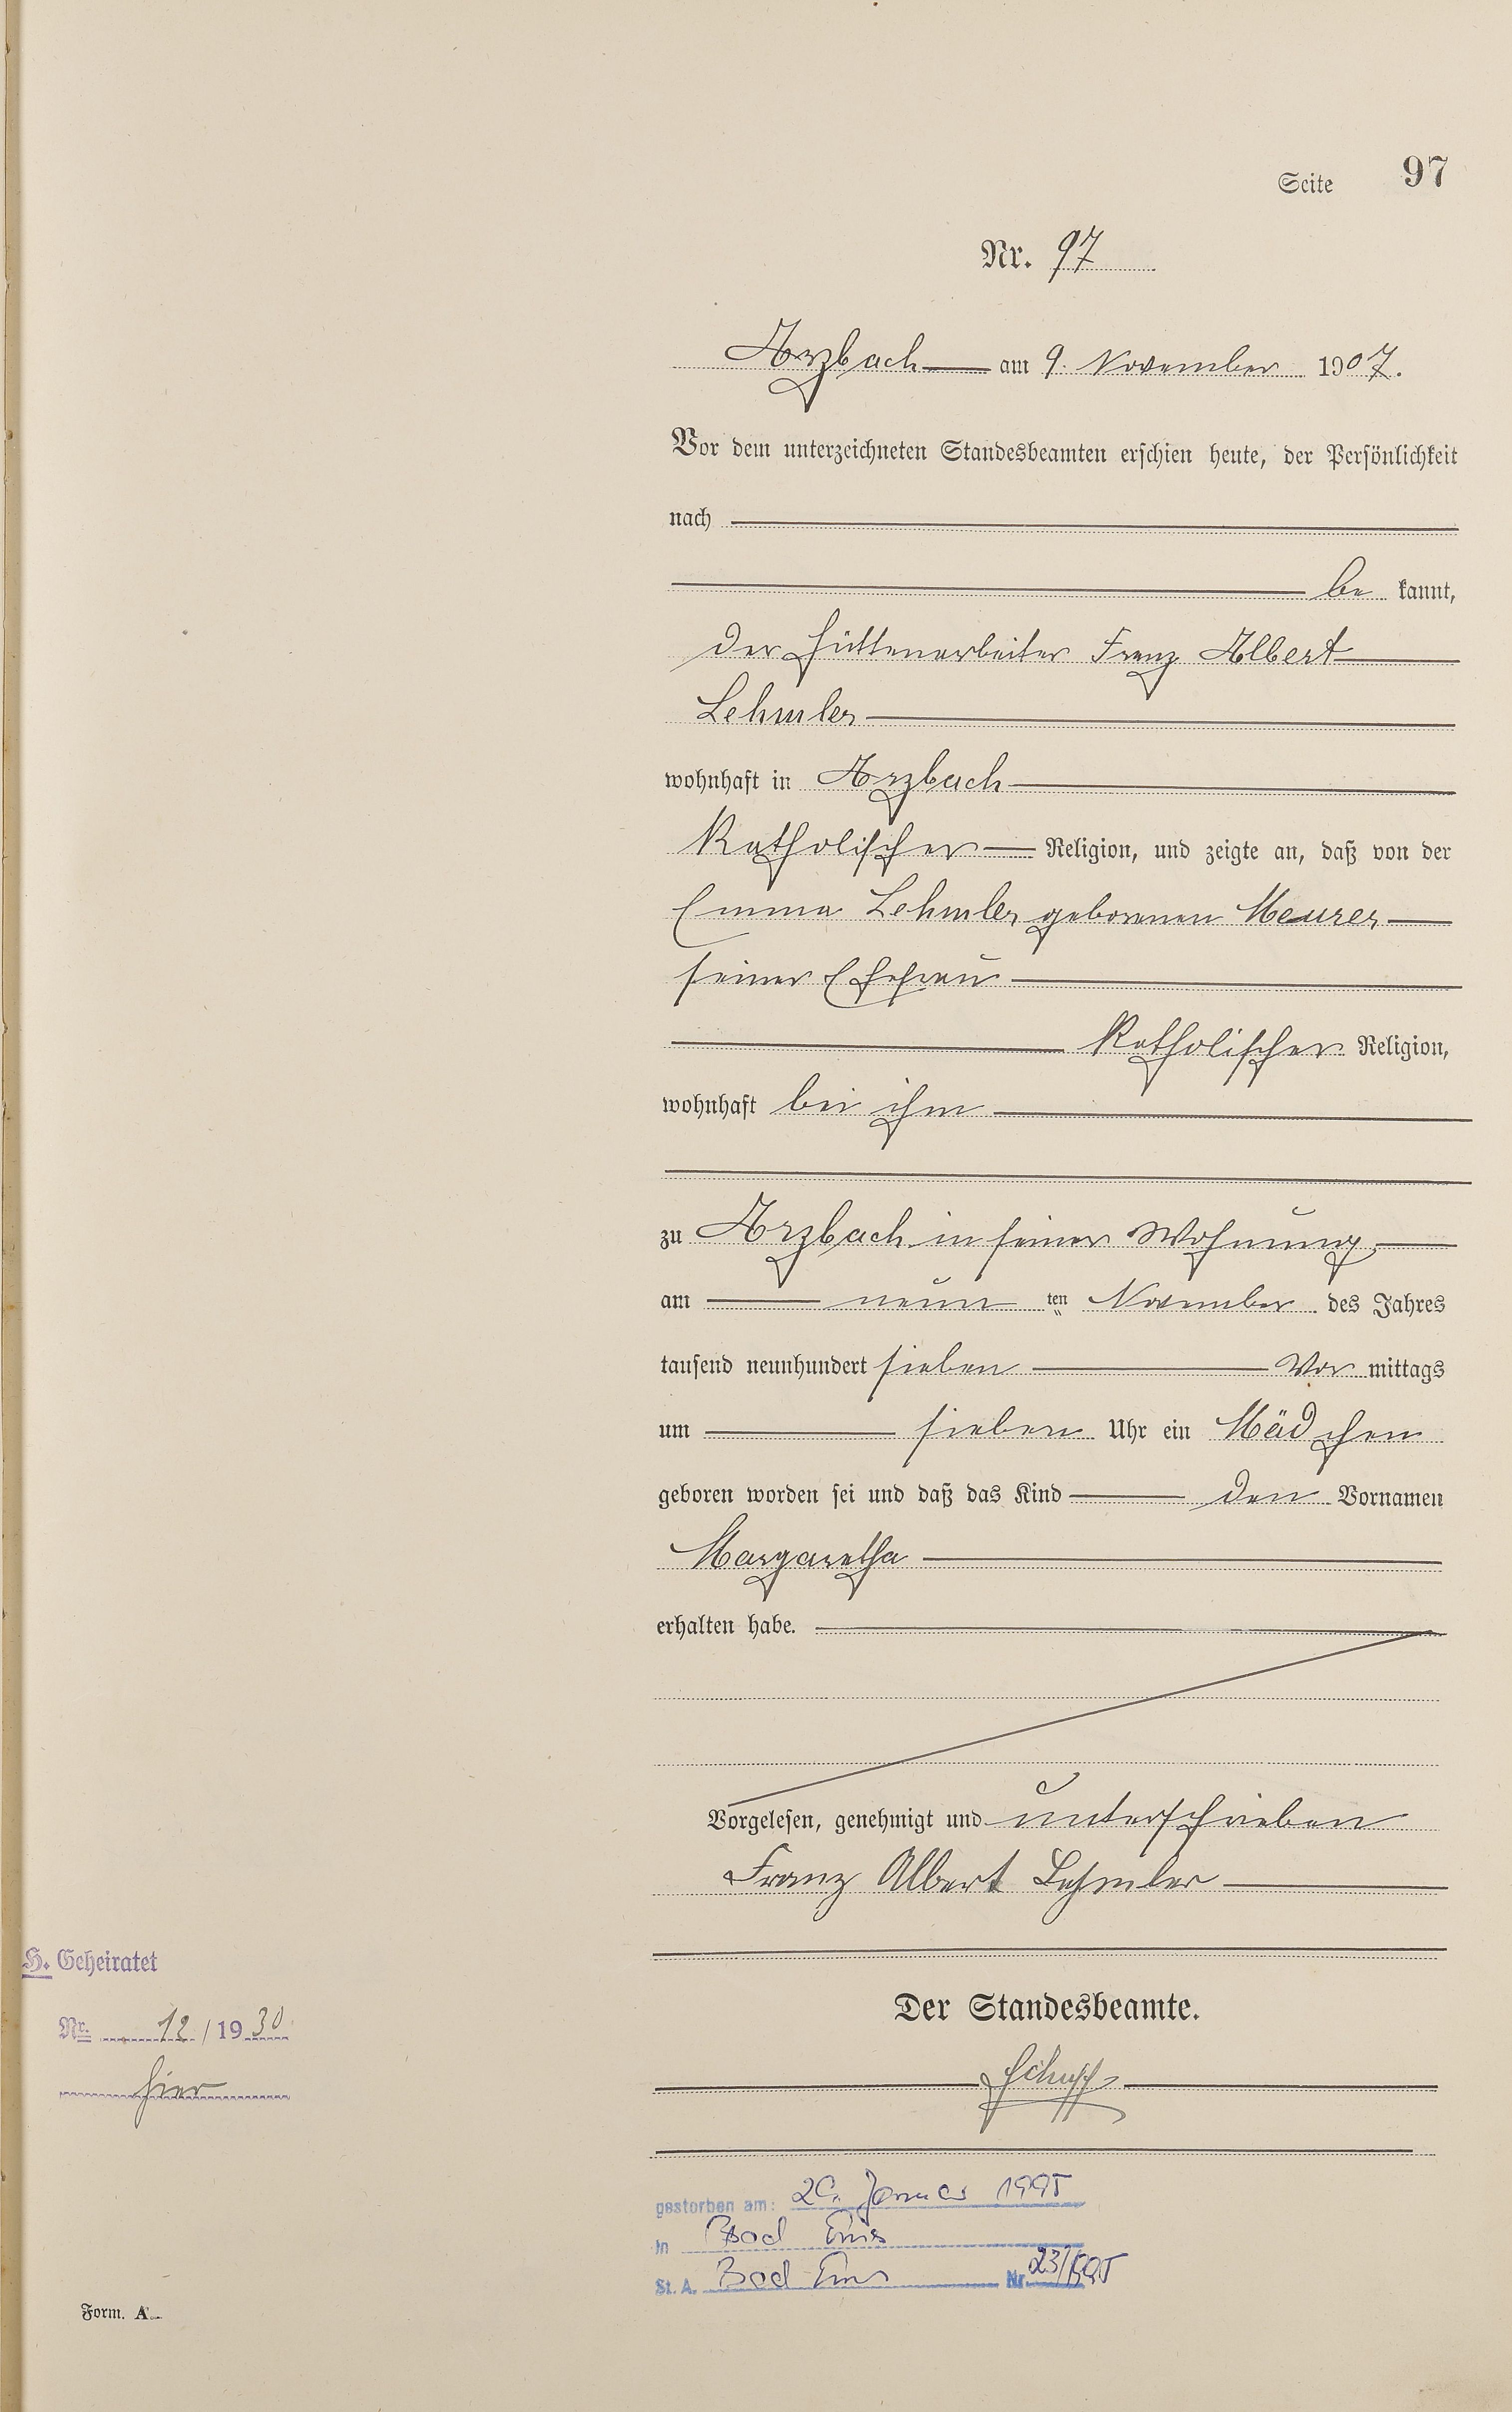 Seite 97
Nr. 97
Arzbach am 9. November 1907.
Vor dem unterzeichneten Standesbeamten erschien heute, der Persönlichkeit
nach
be kannt,
der Hüttenarbeiter Franz Albert
Lehmler
wohnhaft in Arzbach
katholischer Religion, und zeigte an, daß von der
Emma Lehmler geborenen Meurer
seiner Ehefrau
katholischer Religion,
wohnhaft bei ihm
zu Arzbach in seiner Wohnung
am neun ten November des Jahres
tausend neunhundert sieben Vor mittags
um sieben Uhr ein Mädchen
geboren worden sei und daß das Kind den Vornamen
Margaretha
erhalten habe.
Vorgelesen, genehmigt und unterschrieben
Franz Albert Lehmler
H. Geheiratet
Nr. 12/1930
hier
Der Standesbeamte.
gestorben am: Januar 1995
in Bad Ems
St. A. Bad Ems Nr 23/1995
Form. A.